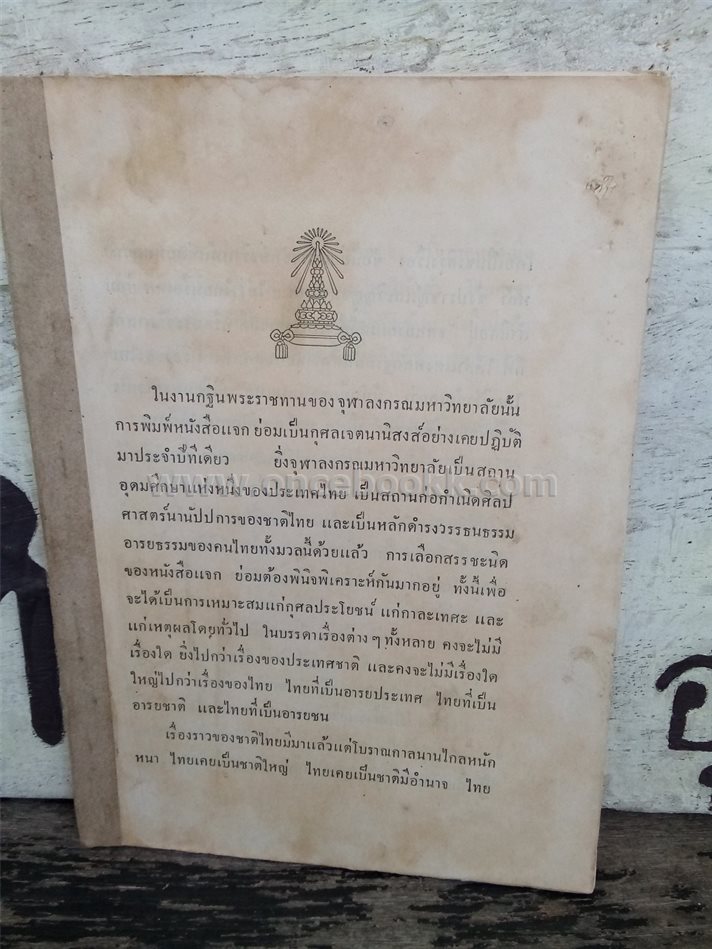 ในงานกฐินพระราชทานของจุฬาลงกรณมหาวิทยาลัยนั้น
การพิมพ์หนังสือแจก ย่อมเป็นกุศลเจตนานิสงส์อย่างเคยปฏิบัติ
มาประจำปีทีเดียว ยิ่งจุฬาลงกรณมหาวิทยาลัยเป็นสถาน
www.oncebookk.com
อุดมศึกษาแห่งหนึ่งของประเทศไทย เป็นสถานก่อกำเนิดศิลป
ศาสตร์นานัปปการของชาติไทย และเป็นหลักดำรงวรรธนธรรม
อารยธรรมของคนไทยทั้งมวลนี้ด้วยแล้ว การเลือกสรรชะนิด
ของหนังสือแจก ย่อมต้องพินิจพิเคราะห์กันมากอยู่ ทั้งนี้เพื่อ
จะได้เป็นการเหมาะสมแก่กุศลประโยชน์ แก่กาละเทศะ และ
แก่เหตุผลโดยทั่วไป ในบรรดาเรื่องต่าง ๆ ทั้งหลาย คงจะไม่มี
เรื่องใด ยิ่งไปกว่าเรื่องของประเทศชาติ และคงจะไม่มีเรื่องใด
ใหญ่ไปกว่าเรื่องของไทย ไทยที่เป็นอารยประเทศ ไทยที่เป็น
อารยชาติ และไทยที่เป็นอารยชน
เรื่องราวของชาติไทยมีมาแล้วแต่โบราณกาลนานไกลหนัก
หนา ไทยเคยเป็นชาติใหญ่ ไทยเคยเป็นชาติมีอำนาจ ไทย